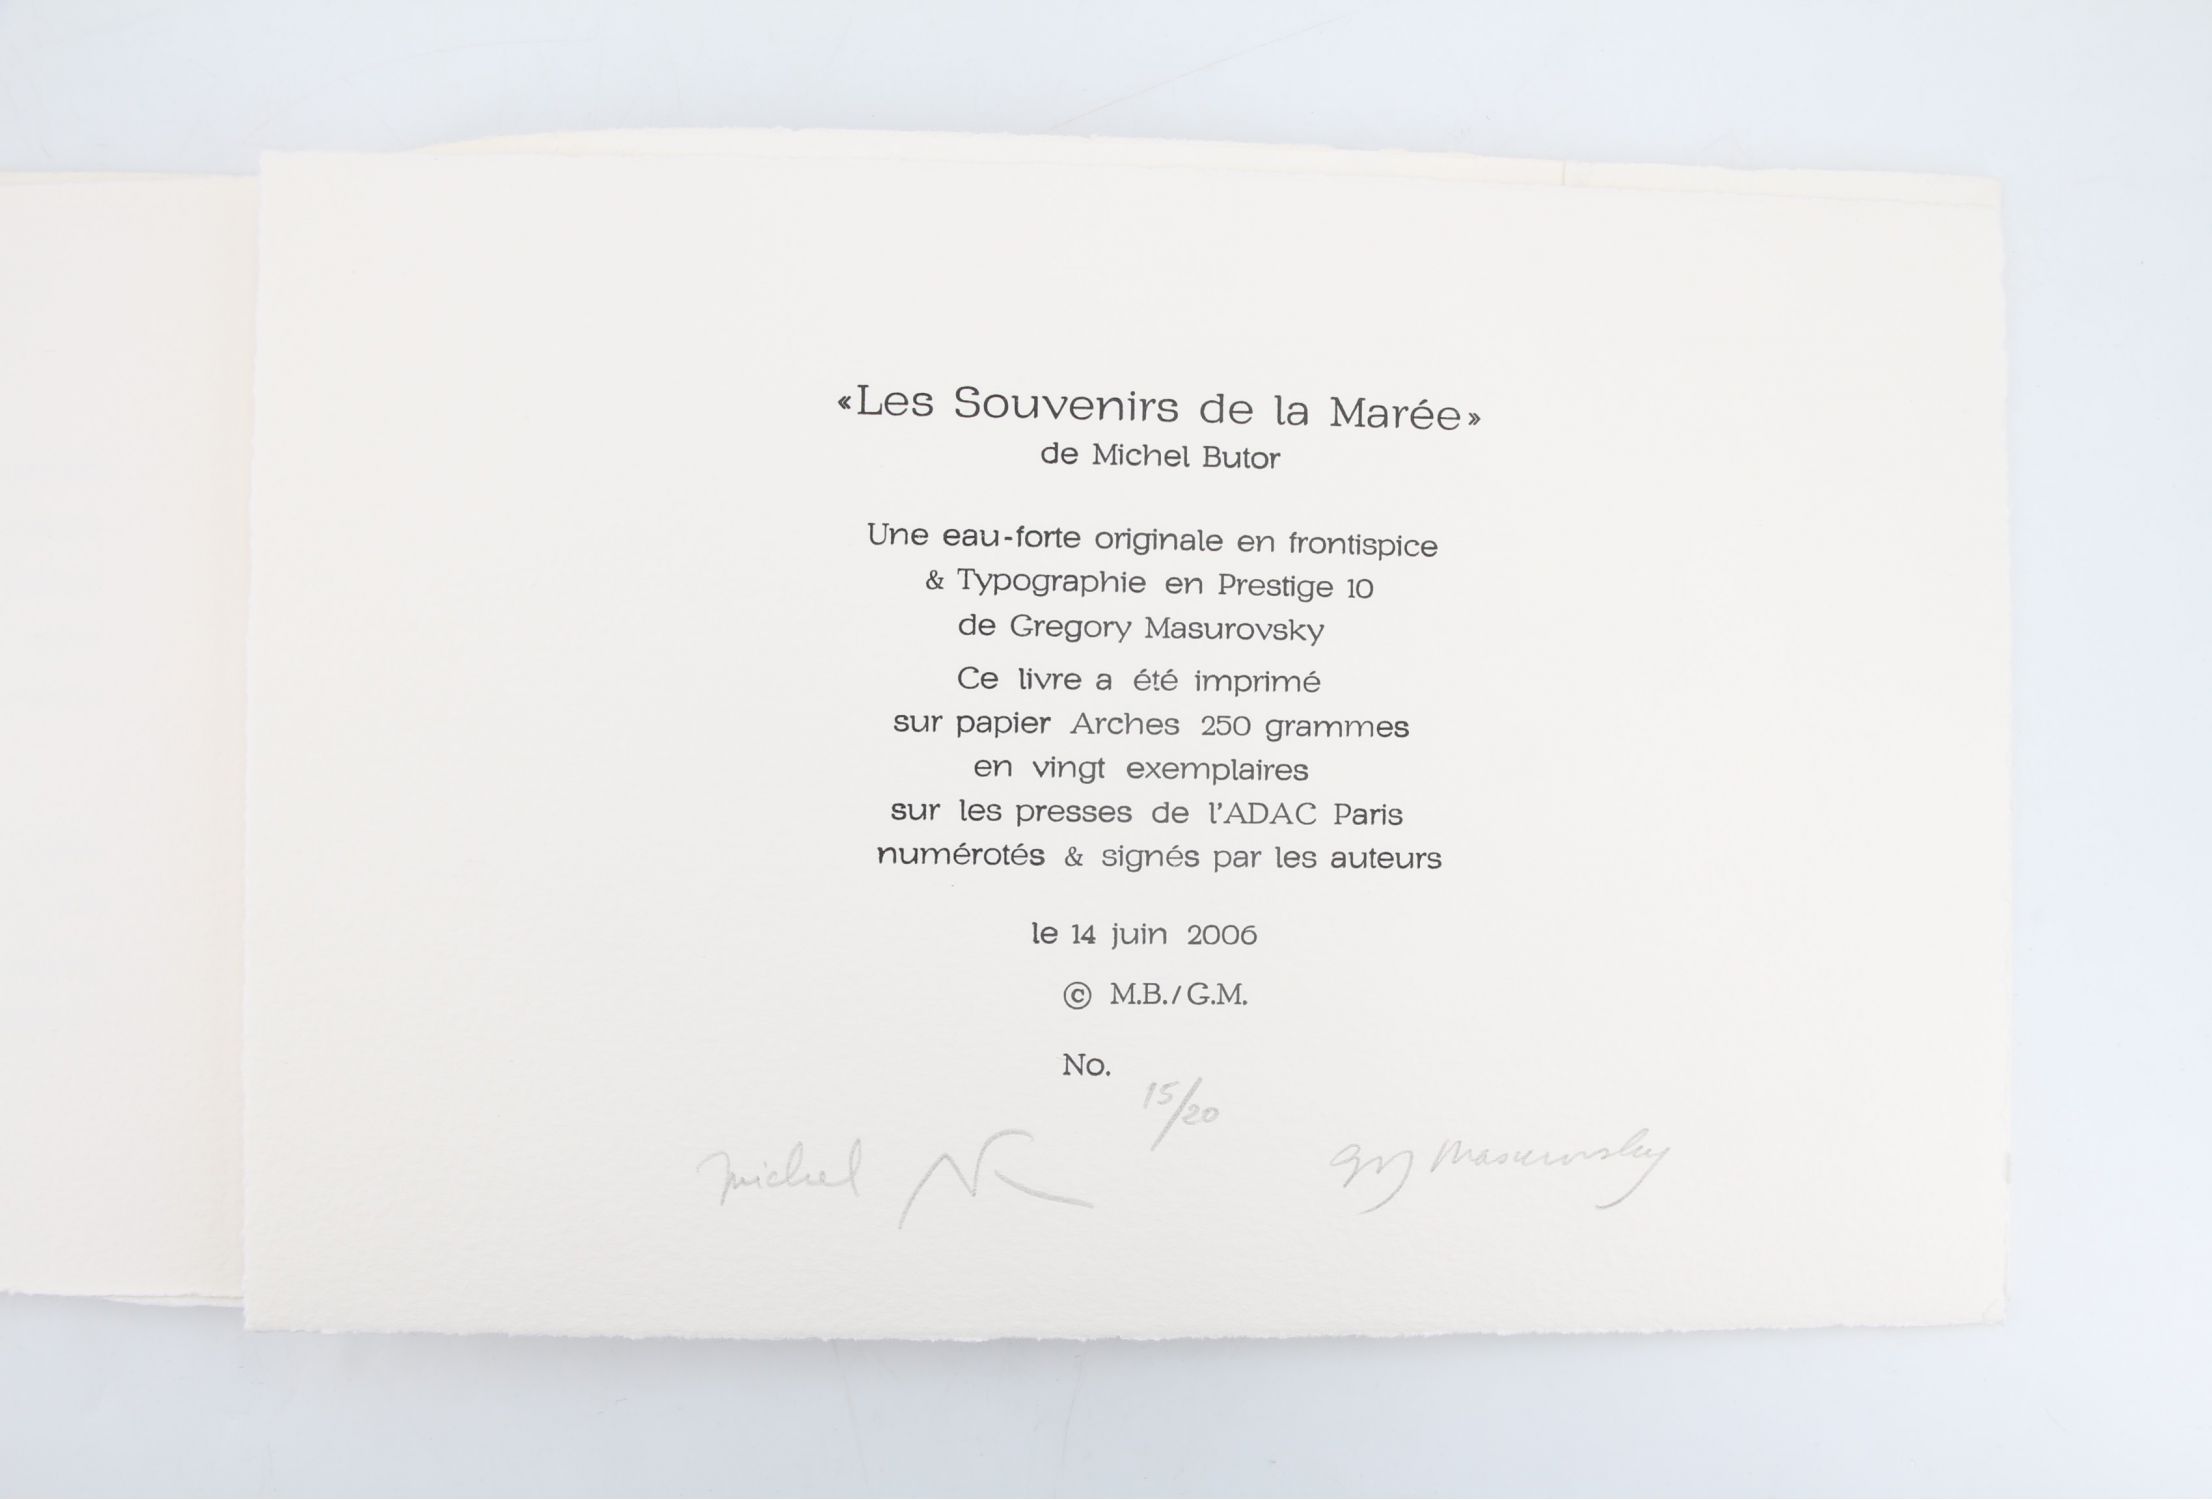 «Les Souvenirs de la Marée»
de Michel Butor
Une eau-forte originale en frontispice
& Typographie en Prestige 10
de Gregory Masurovsky
Ce livre a été imprimé
sur papier Arches 250 grammes
en vingt exemplaires
sur les presses de l'ADAC Paris
numérotés & signés par les auteurs
le 14 juin 2006
© M.B./G.M.
No. 15/20
Michel
Masurovsky